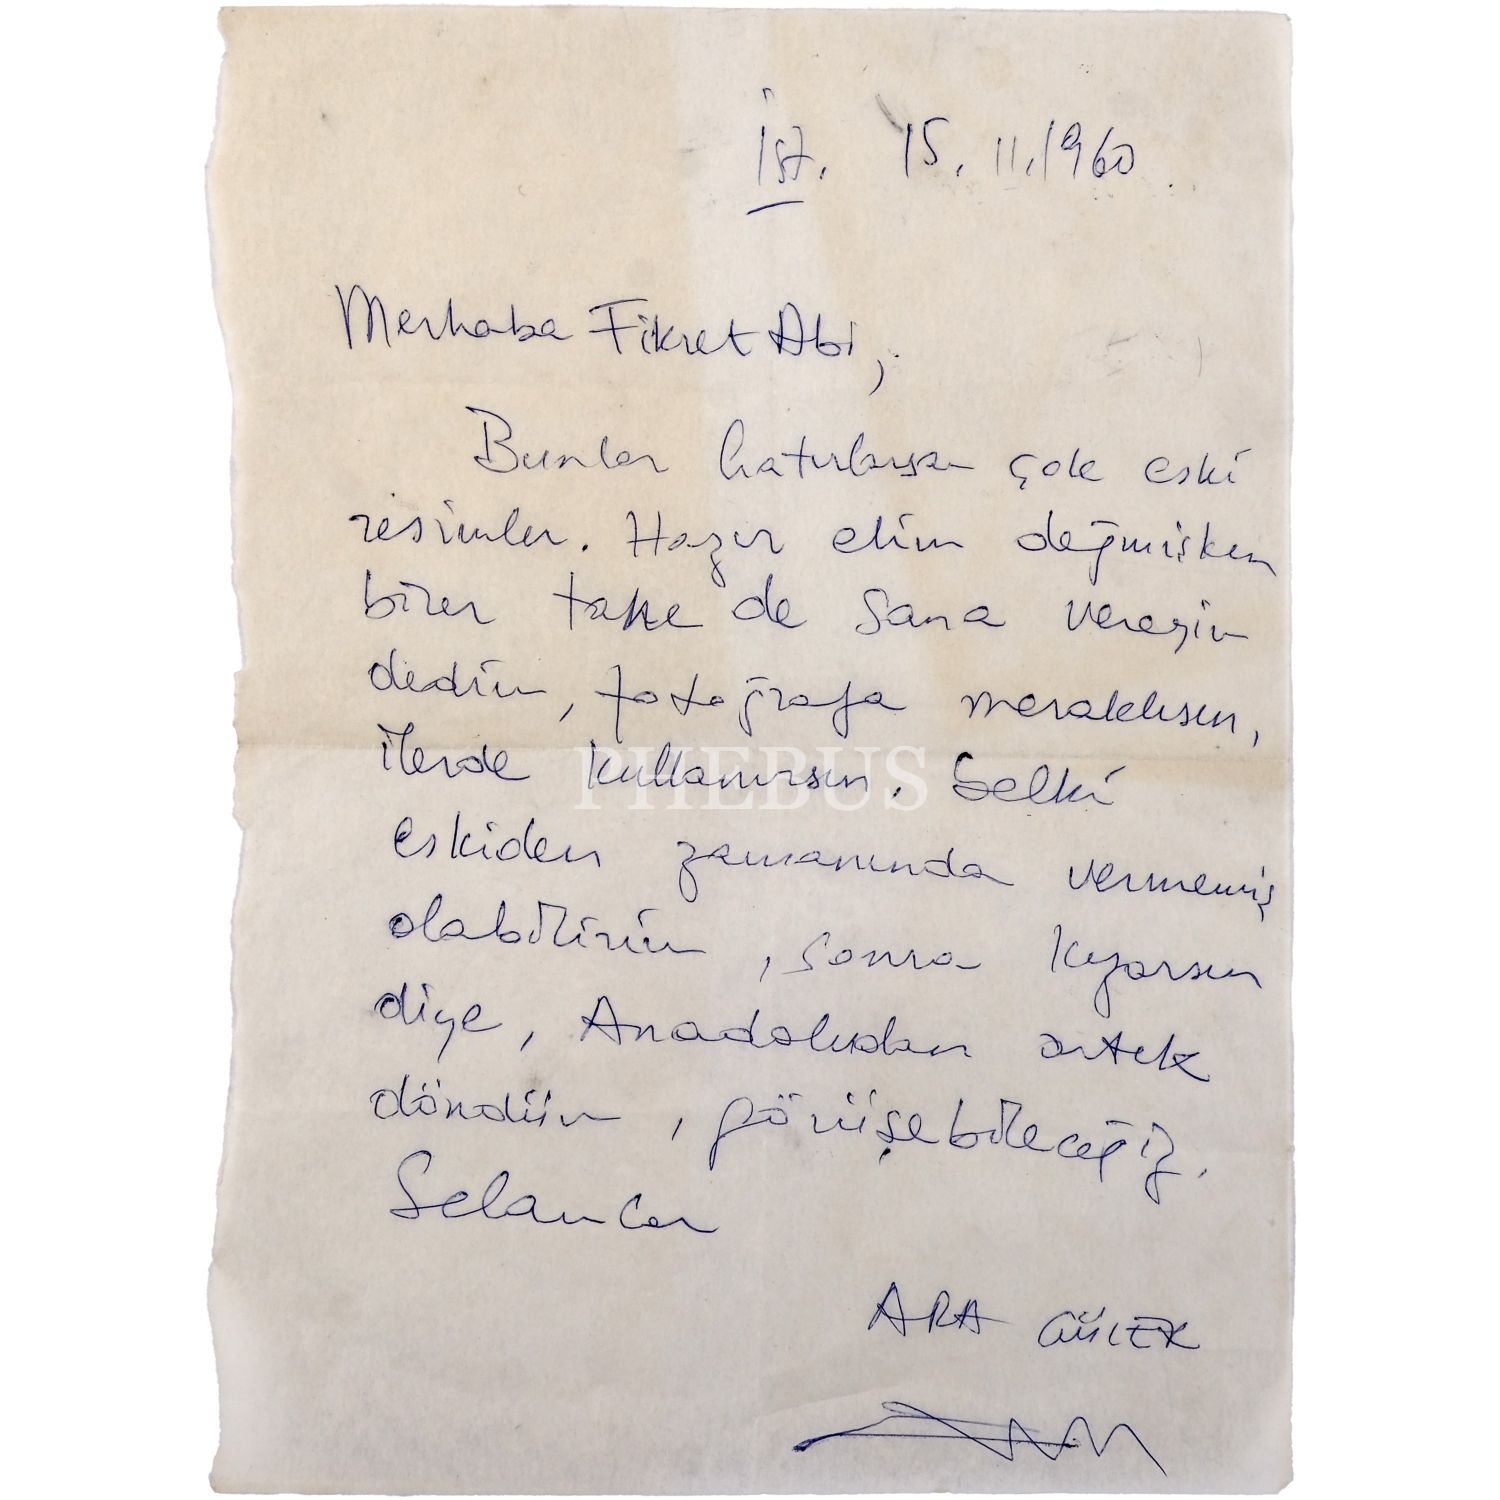 İst. 15.11.1960
Merhaba Fikret Abi,
Bunlar hatırlarsan çok eski
resimler. Hazır elim değmişken
birer tane de sana vereyim
dedim, fotoğrafa meraklısın,
ilerde kullanırsın. Belki
PHEBUS
eskiden zamanında vermemiş
olabilirim, sonra kızarsın
diye, Anadoludan artık
döndüm, görüşebileceğiz.
Selamlar
ARA GÜLER